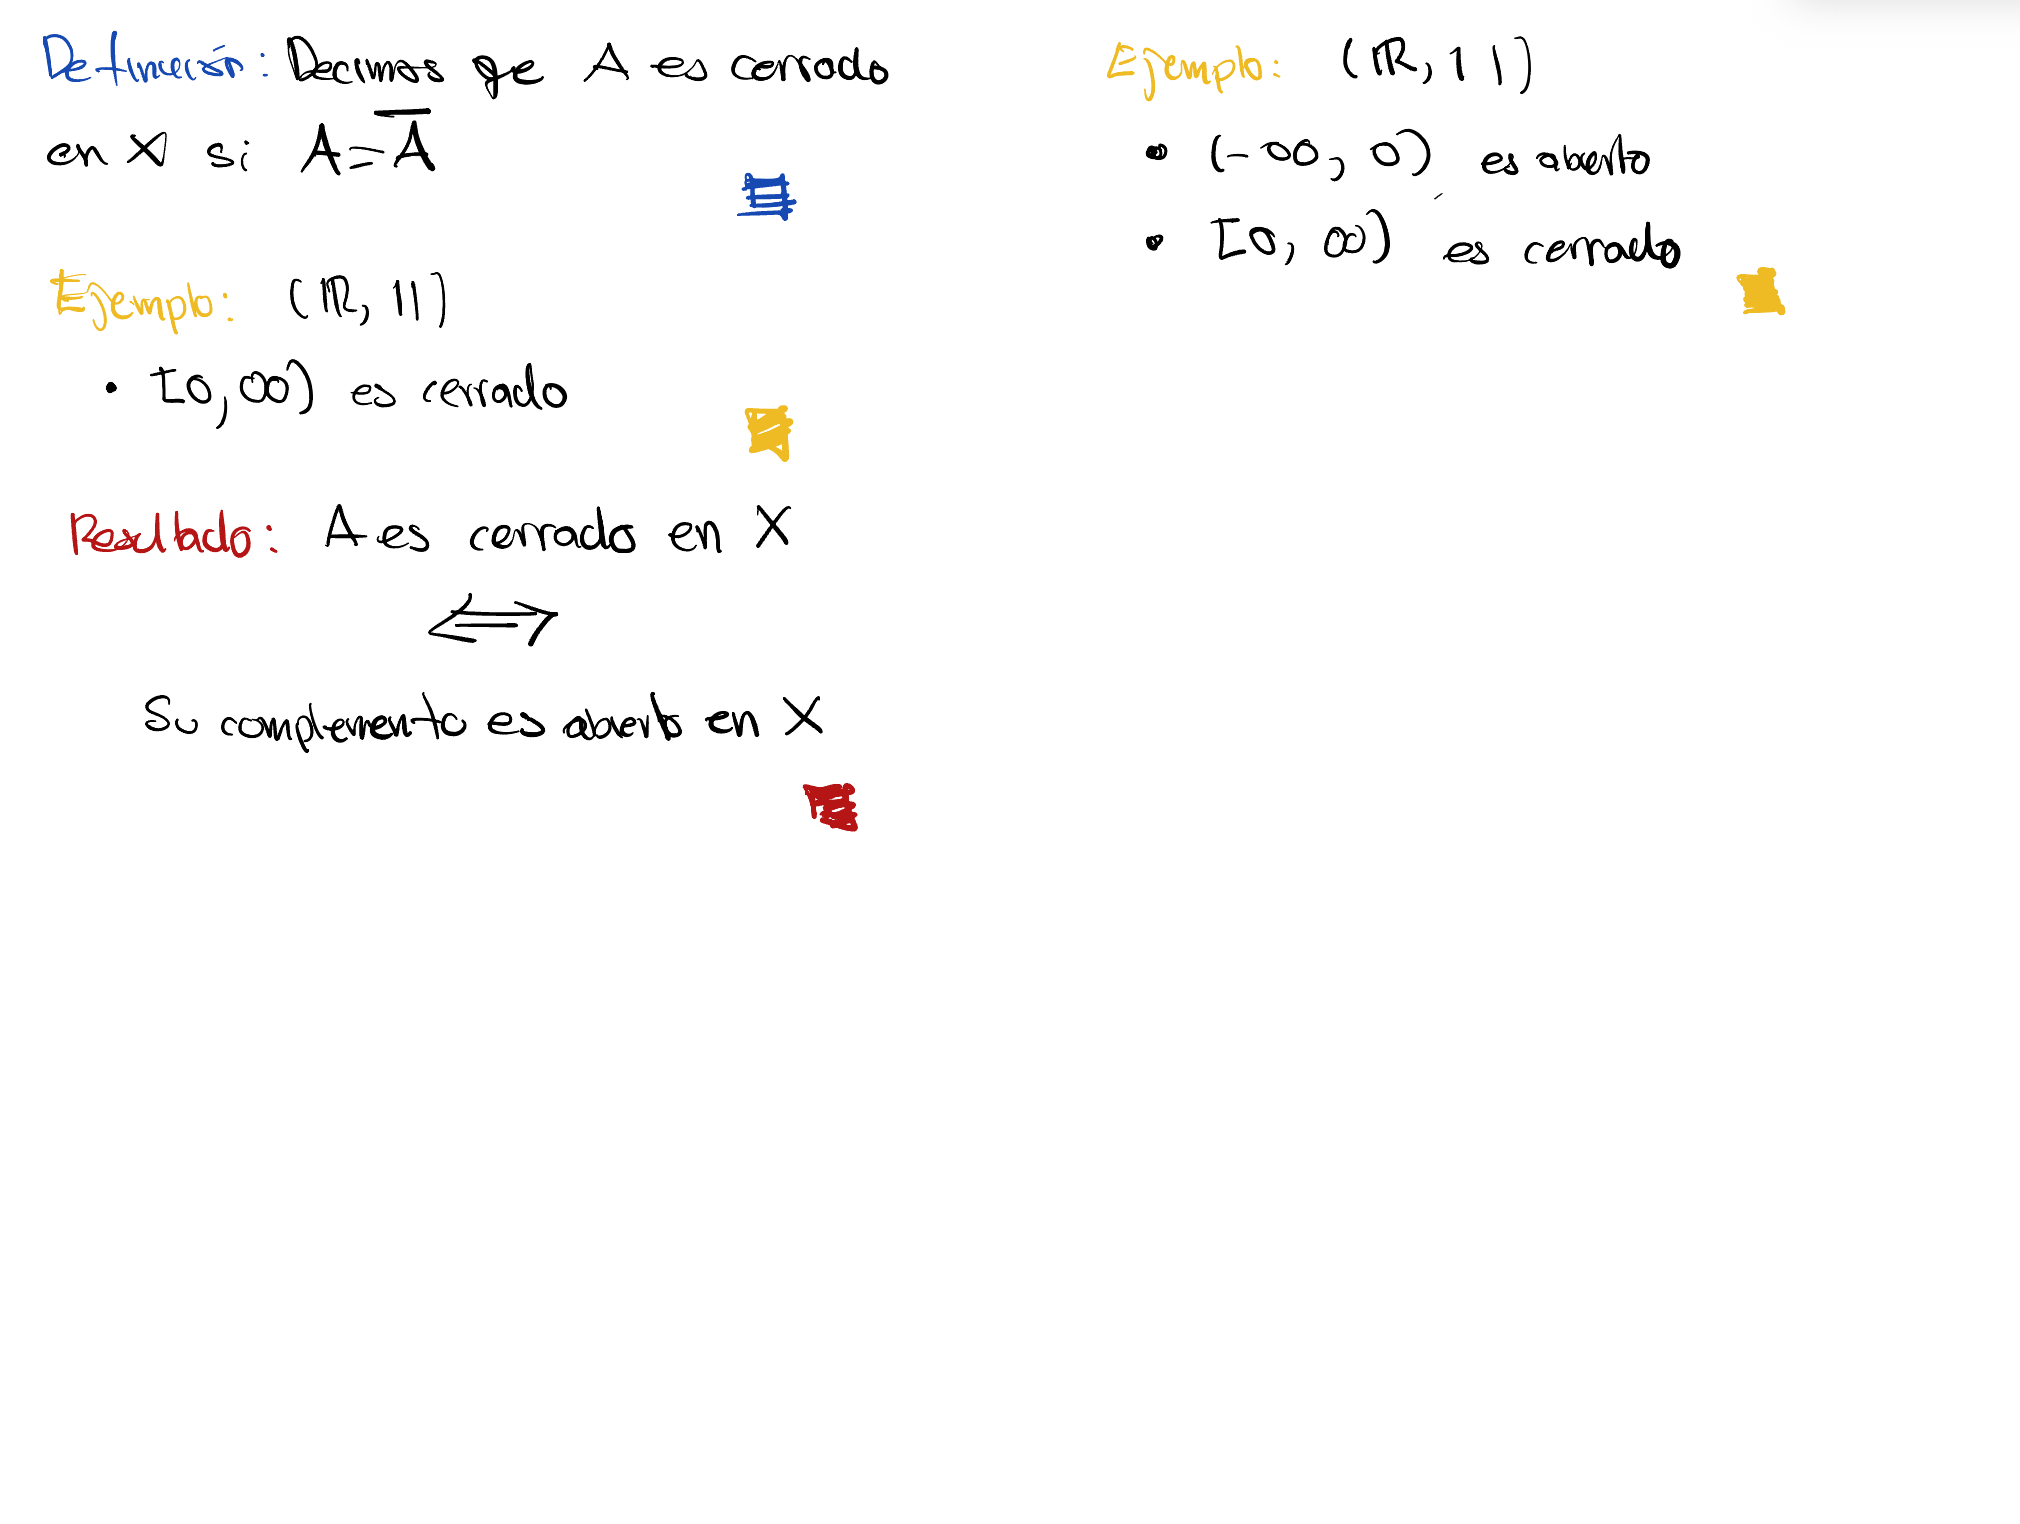 Definición: Decimos qe A es cerrado
en X si A = A̅
Ejemplo: (ℝ, | |)
• [0, ∞) es cerrado
Resultado: A es cerrado en X
⟺
Su complemento es abierto en X
Ejemplo: (ℝ, | |)
• (-∞, 0) es abierto
• [0, ∞) es cerrado